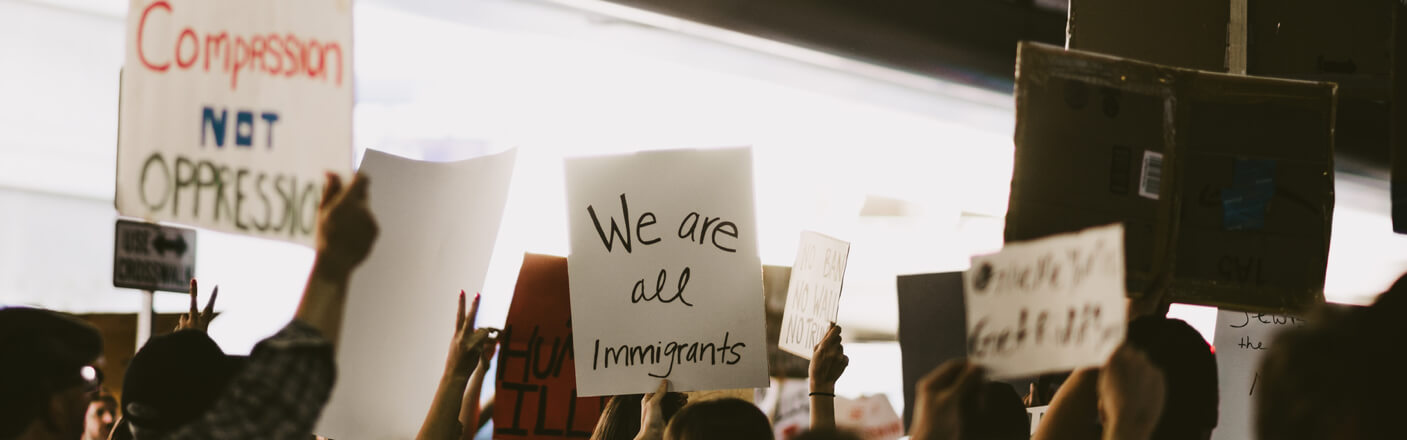 Compassion
NOT
OPPRESSIO
USE
CROSSWALK
We are
all
Immigrants
HUM
ILL
NO BAN
NO WALL
the